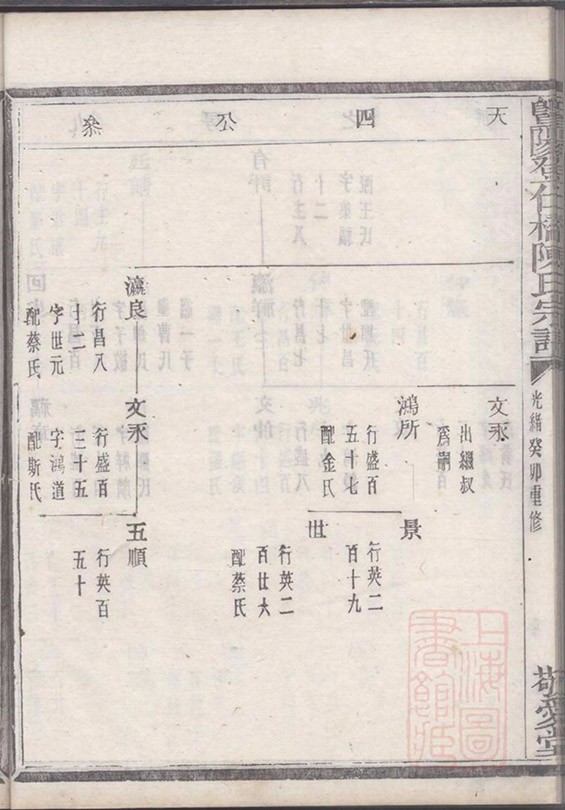 暨陽登仕橋陳氏宗譜
光緒癸卯重修
敬愛堂
天四公叅
文承
出繼叔
爲嗣
鴻所
行盛百
五十七
配金氏
景
行英二
百十九
世
行英二
百廿六
配蔡氏
瀛良
行昌八
十二
字世元
配蔡氏
文承
行盛百
三十五
字鴻道
配斯氏
五順
行英百
五十
上海圖
書館藏